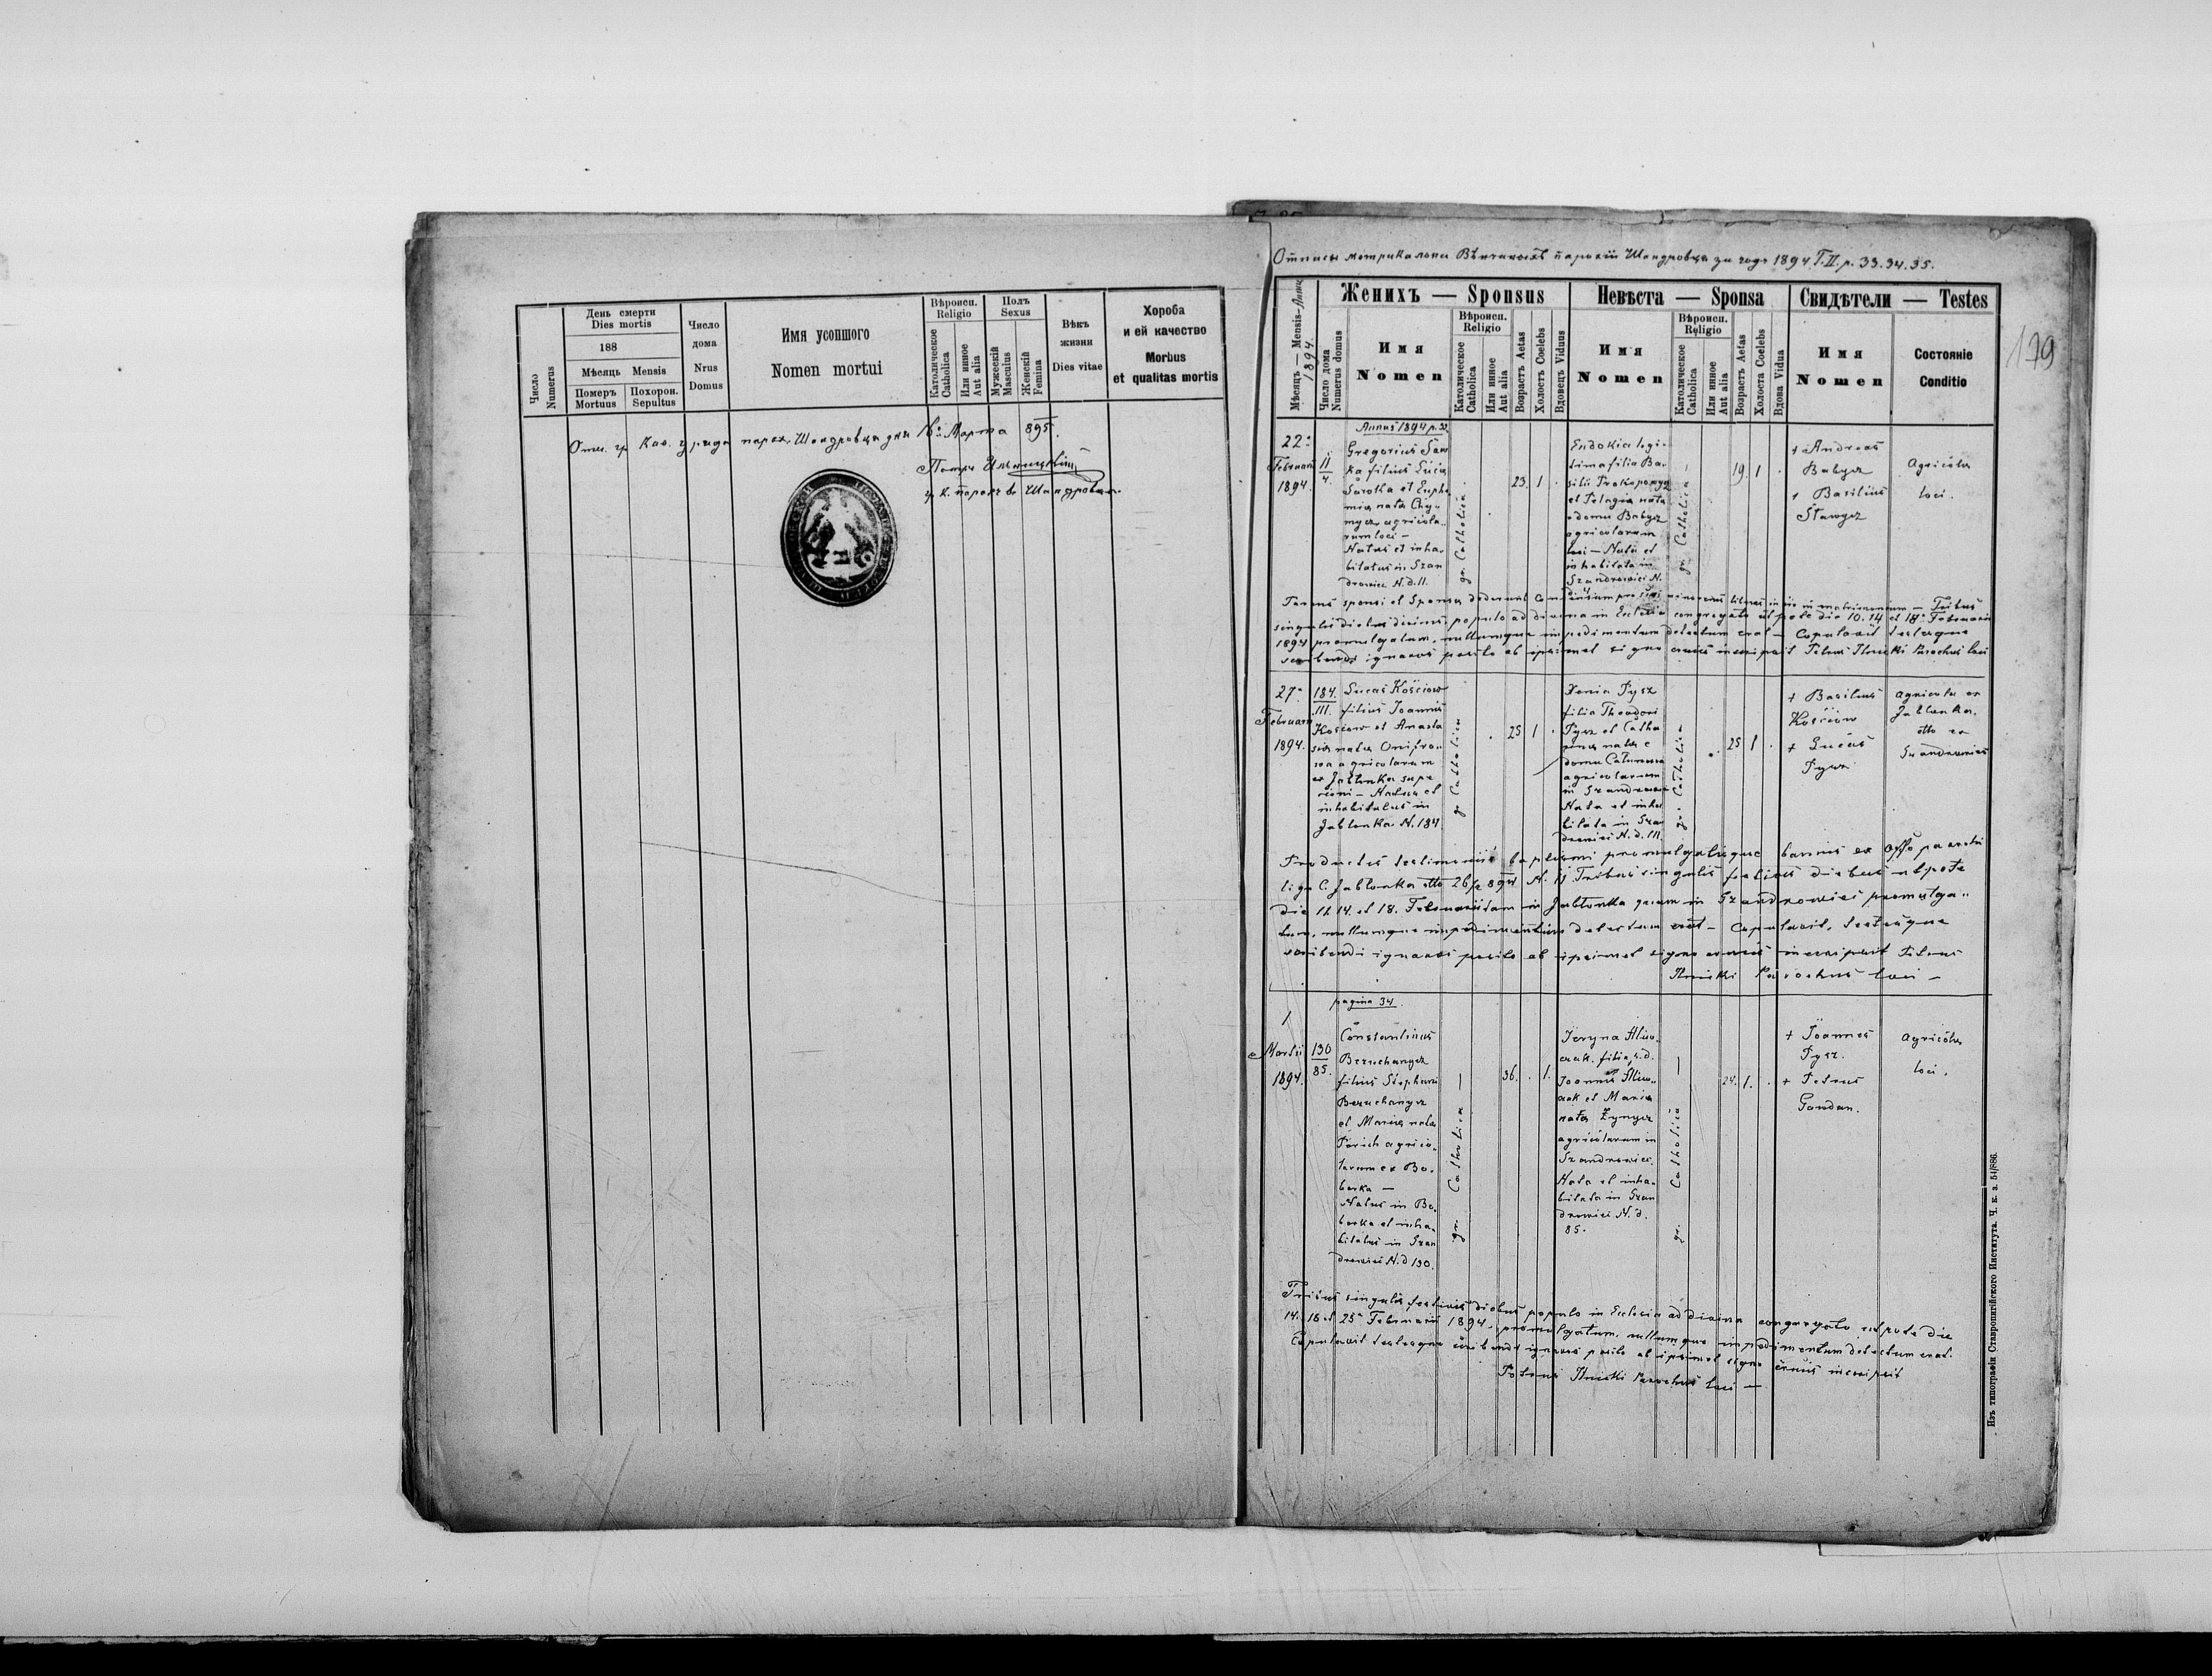 День смерти
Dies mortis
188
Мѣсяць Mensis
Померъ
Mortuus
Похорон.
Sepultus
Число
Numerus
Число
дома
Nrus
Domus
Имя усопшого
Nomen mortui
Вѣроисп.
Religio
Католическое
Catholica
Или инное
Aut alia
Полъ
Sexus
Мужескій
Masculus
Женскій
Femina
Вѣкъ
жизни
Dies vitae
Хороба
и ей качество
Morbus
et qualitas mortis
Отъ гр. Кат. уряда парох. Шандровця дня 16. Марта 895.
Петръ Ильницкій
гр. к. парохъ в Шандровци.
Отписы метрикальни Вѣнчаныхъ парохіи Шандровця за годъ 1894 T. II. p. 33. 34. 35.
179
Мѣсяцъ — Mensis — Annus
1894.
Число дома
Numerus domus
Женихъ — Sponsus
Имя
Nomen
Вѣроисп.
Religio
Католическое
Catholica
Или инное
Aut alia
Возрастъ Aetas
Холостъ Coelebs
Вдовецъ Viduus
Невѣста — Sponsa
Имя
Nomen
Вѣроисп.
Religio
Католическое
Catholica
Или инное
Aut alia
Возрастъ Aetas
Холоста Coelebs
Вдова Vidua
Свидѣтели — Testes
Имя
Nomen
Состояніе
Conditio
Annus 1894 p. 33
22
Februarii
1894.
11
4.
Gregorius
filius Lucae
et Euphe
mia nata Chy-
mycz agricola-
rum loci —
Natus et inha-
bitatus in Szan
drowiec N. d. 11.
gr. Catholica
23. 1
Eudokia legi-
tima filia Ba-
silii Prokopowycz
et Pelagia nata
e domu Babycz
agricolarum
loci — Nata et
inhabitata in
Szandrowiec N.
gr. Catholica
19 1
+ Andreas
Babycz
+ Basilius
Stawycz
Agricolae
loci.
singulis diebus populo ad divina in Ecclesia congregato utpote die 10. 14 et 18 Februarii
1894 promulgatum, nullumque impedimentum detectum erat — Copulavit testesque
scribendi ignaros posito ab ipsismet signo crucis inscripsit Petrus Ilnicki Parochus loci
27
Februarii
1894.
184.
111.
Lucas Kościow
filius Joannis
Kościow et Anasta
sia nata
agricolarum
ex Jablonka supe
riori — Natus et
inhabitatus in
Jablonka N. 184.
gr. Catholica
25 1
Xenia Pysz
filia Theodori
Pysz et Catha
rina nata e
domu
agricolarum
in Szandrowiec
Nata et inha
bitata in Szan
drowiec N. d. 111.
gr. Catholica
25 1
+ Basilius
Kościow
+ Lucas
Pysz
agricola ex
Jablonka.
dtto ex
Szandrowiec
Productis testimoniis baptismi promulgatisque bannis ex Offo parochi
C. Jablonka dtto 26/2 894 N. 11 Tribus singulis festivis diebus utpote
die 11. 14. et 18. Februarii tam in Jablonka quam in Szandrowiec promulga-
tum, nullumque impedimentum detectum erat — Copulavit, testesque
scribendi ignaros posito ab ipsismet signo crucis inscripsit Petrus
Ilnicki Parochus loci —
pagina 34.
1
Martii
1894.
130
85.
Constantinus
Bezuchanycz
filius Stephani
Bezuchanycz
et Maria nata
agrico-
larum ex Bo-
berka —
Natus in Bo-
berka et inha-
bitatus in Szan
drowiec N. d 130.
gr. Catholica
36. 1.
filia
Joannis
et Maria
nata
agricolarum in
Szandrowiec.
Nata et inha-
bitata in Szan
drowiec N. d.
85.
gr. Catholica
24. 1.
+ Joannes
Pysz.
+ Petrus
Gawdun.
agricolae
loci.
Tribus singulis festivis diebus populo in Ecclesia ad divina congregato utpote die
14. 18 et 25 Februarii 1894 promulgatum, nullumque impedimentum detectum erat.
Copulavit testesque scribendi ignaros posito ab ipsismet signo crucis inscripsit
Petrus Ilnicki Parochus loci —
Изъ типографіи Ставропигійского Института. Ч. к. з. 54/886.